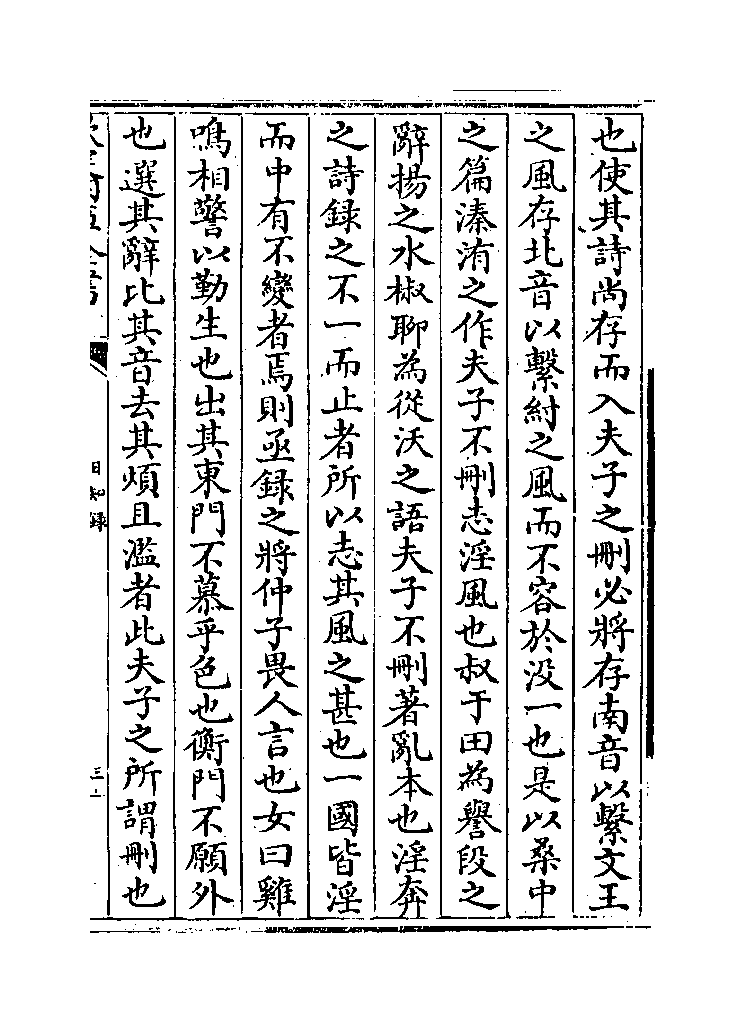 也使其詩尚存而入夫子之刪必將存南音以繫文王
之風存北音以繫紂之風而不容於没一也是以桑中
之篇溱洧之作夫子不刪志淫風也叔于田為譽段之
辭揚之水椒聊為從沃之語夫子不刪著亂本也淫奔
之詩録之不一而止者所以志其風之甚也一國皆淫
而中有不變者焉則亟録之將仲子畏人言也女曰雞
鳴相警以勤生也出其東門不慕乎色也衡門不願外
也選其辭比其音去其煩且濫者此夫子之所謂刪也
日知録